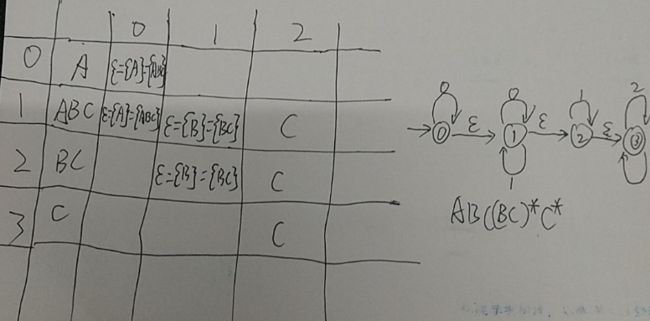 0 1 2
0 A ε={A}={ABC}
1 ABC ε={A}={ABC} ε={B}={BC} C
2 BC ε={B}={BC} C
3 C C
0 0 1 2
0 ε 1 ε 2 ε 3
1
AB((BC)*C*